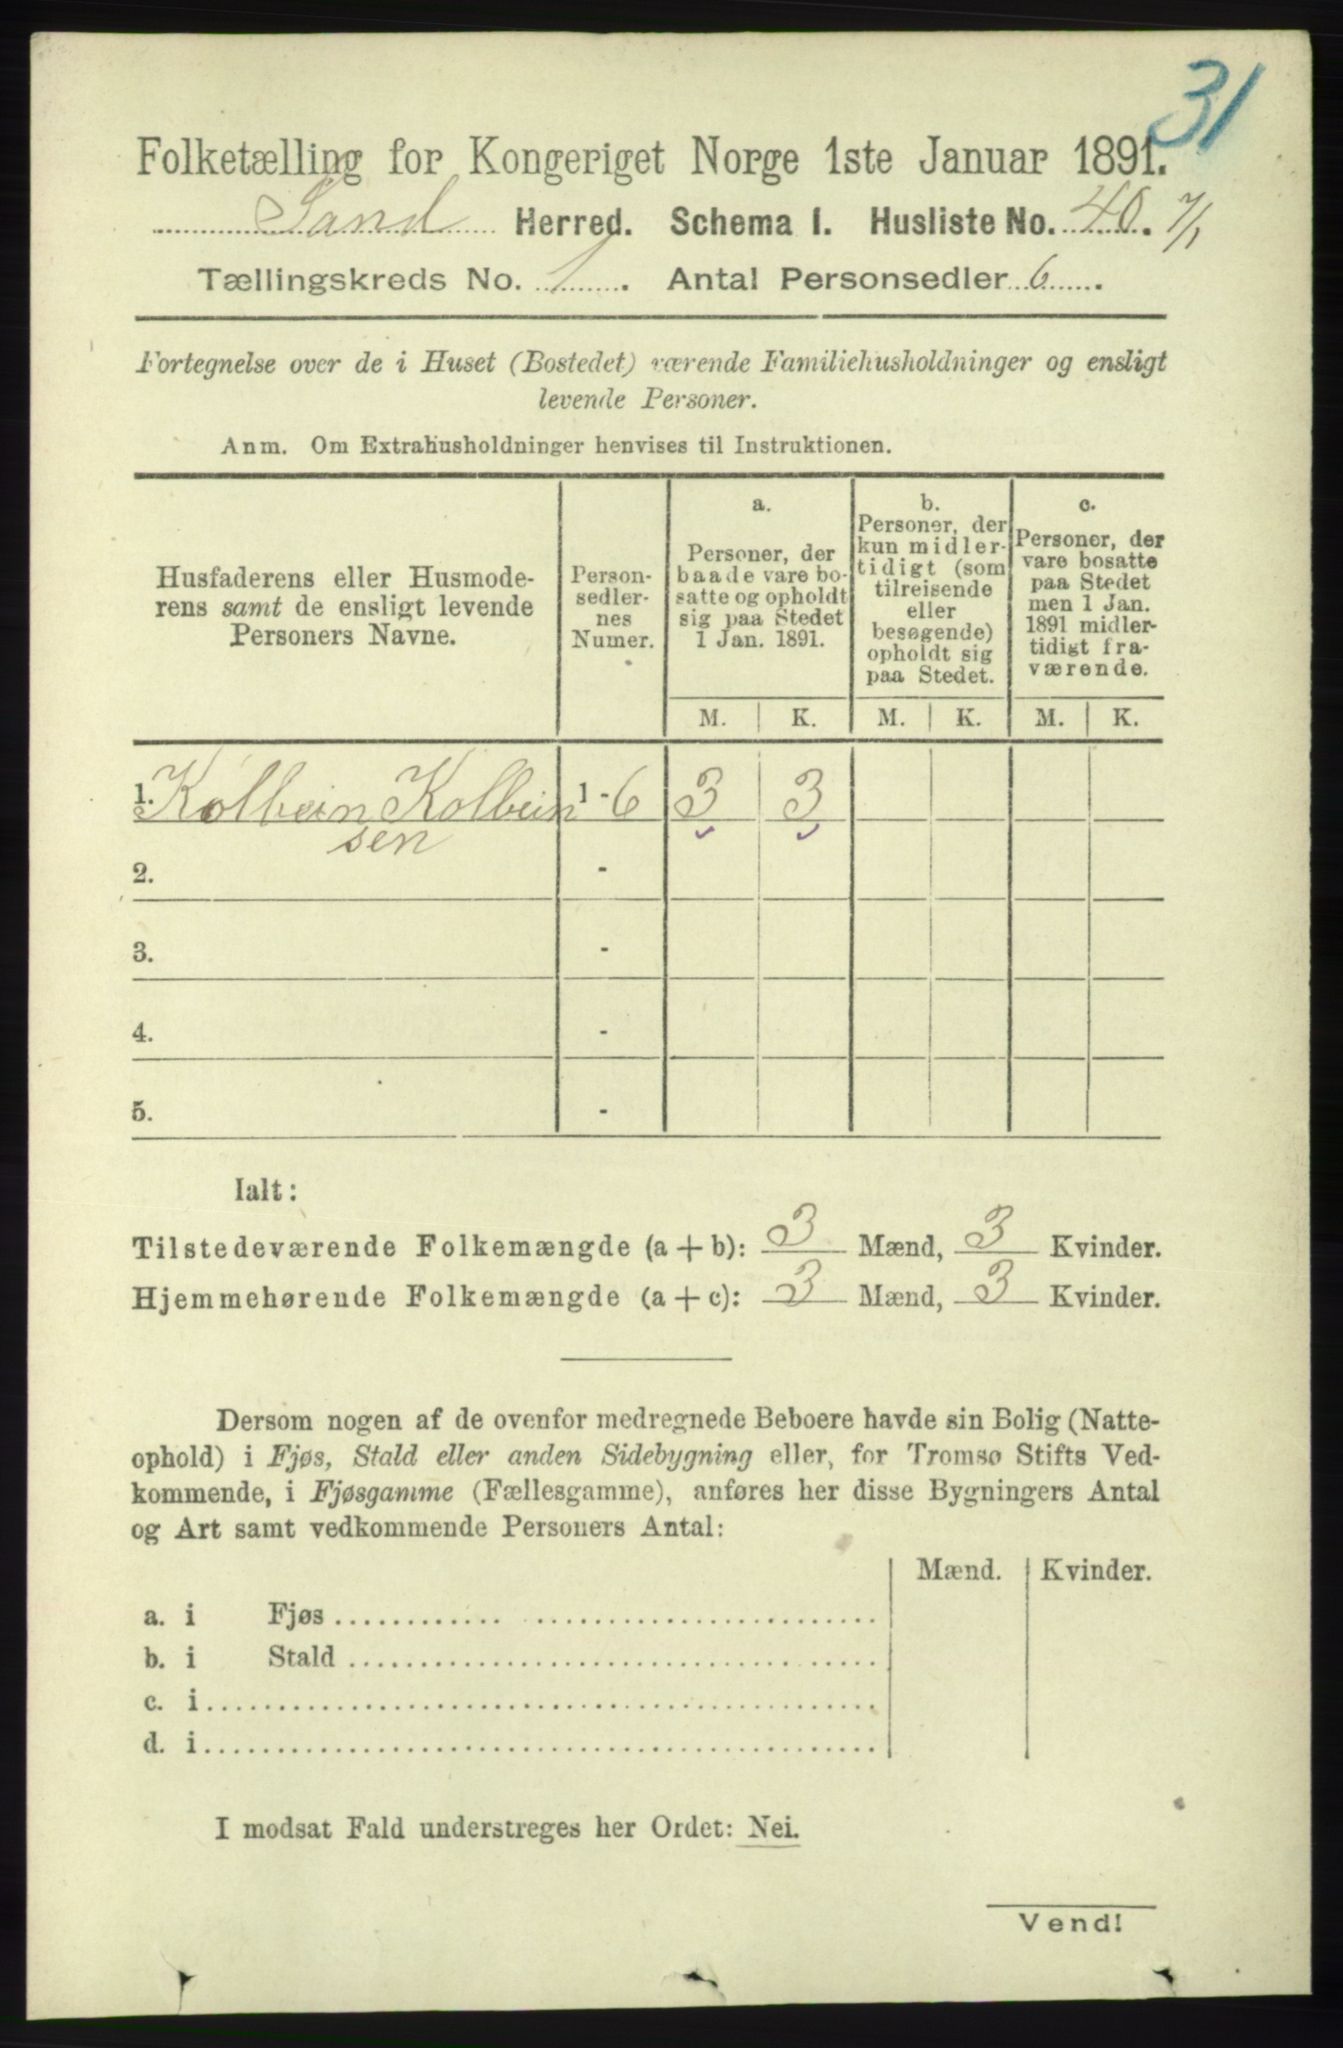 31
Folketælling for Kongeriget Norge 1ste Januar 1891.
Sand Herred. Schema I. Husliste No. 40. 7/1
Tællingskreds No. 1. Antal Personsedler 6.
Fortegnelse over de i Huset (Bostedet) værende Familiehusholdninger og ensligt
levende Personer.
Anm. Om Extrahusholdninger henvises til Instruktionen.
Husfaderens eller Husmode-
rens samt de ensligt levende
Personers Navne.
Person-
sedler-
nes
Numer.
a.
Personer, der
baade vare bo-
satte og opholdt
sig paa Stedet
1 Jan. 1891.
b.
Personer, der
kun midler-
tidigt (som
tilreisende
eller
besøgende)
opholdt sig
paa Stedet.
c.
Personer, der
vare bosatte
paa Stedet
men 1 Jan.
1891 midler-
tidigt fra-
værende.
M. K. M. K. M. K.
1. Kolbein Kolbein 1 - 6 3 3
sen
2. -
3. -
4. -
5. -
Ialt:
Tilstedeværende Folkemængde (a + b): 3 Mænd, 3 Kvinder.
Hjemmehørende Folkemængde (a + c): 3 Mænd, 3 Kvinder.
Dersom nogen af de ovenfor medregnede Beboere havde sin Bolig (Natte-
ophold) i Fjøs, Stald eller anden Sidebygning eller, for Tromsø Stifts Ved-
kommende, i Fjøsgamme (Fællesgamme), anføres her disse Bygningers Antal
og Art samt vedkommende Personers Antal:
Mænd. Kvinder.
a. i Fjøs
b. i Stald
c. i
d. i
I modsat Fald understreges her Ordet: Nei.
Vend!